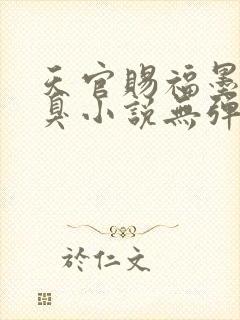 天官賜福墨
臭小說無彈
於仁文